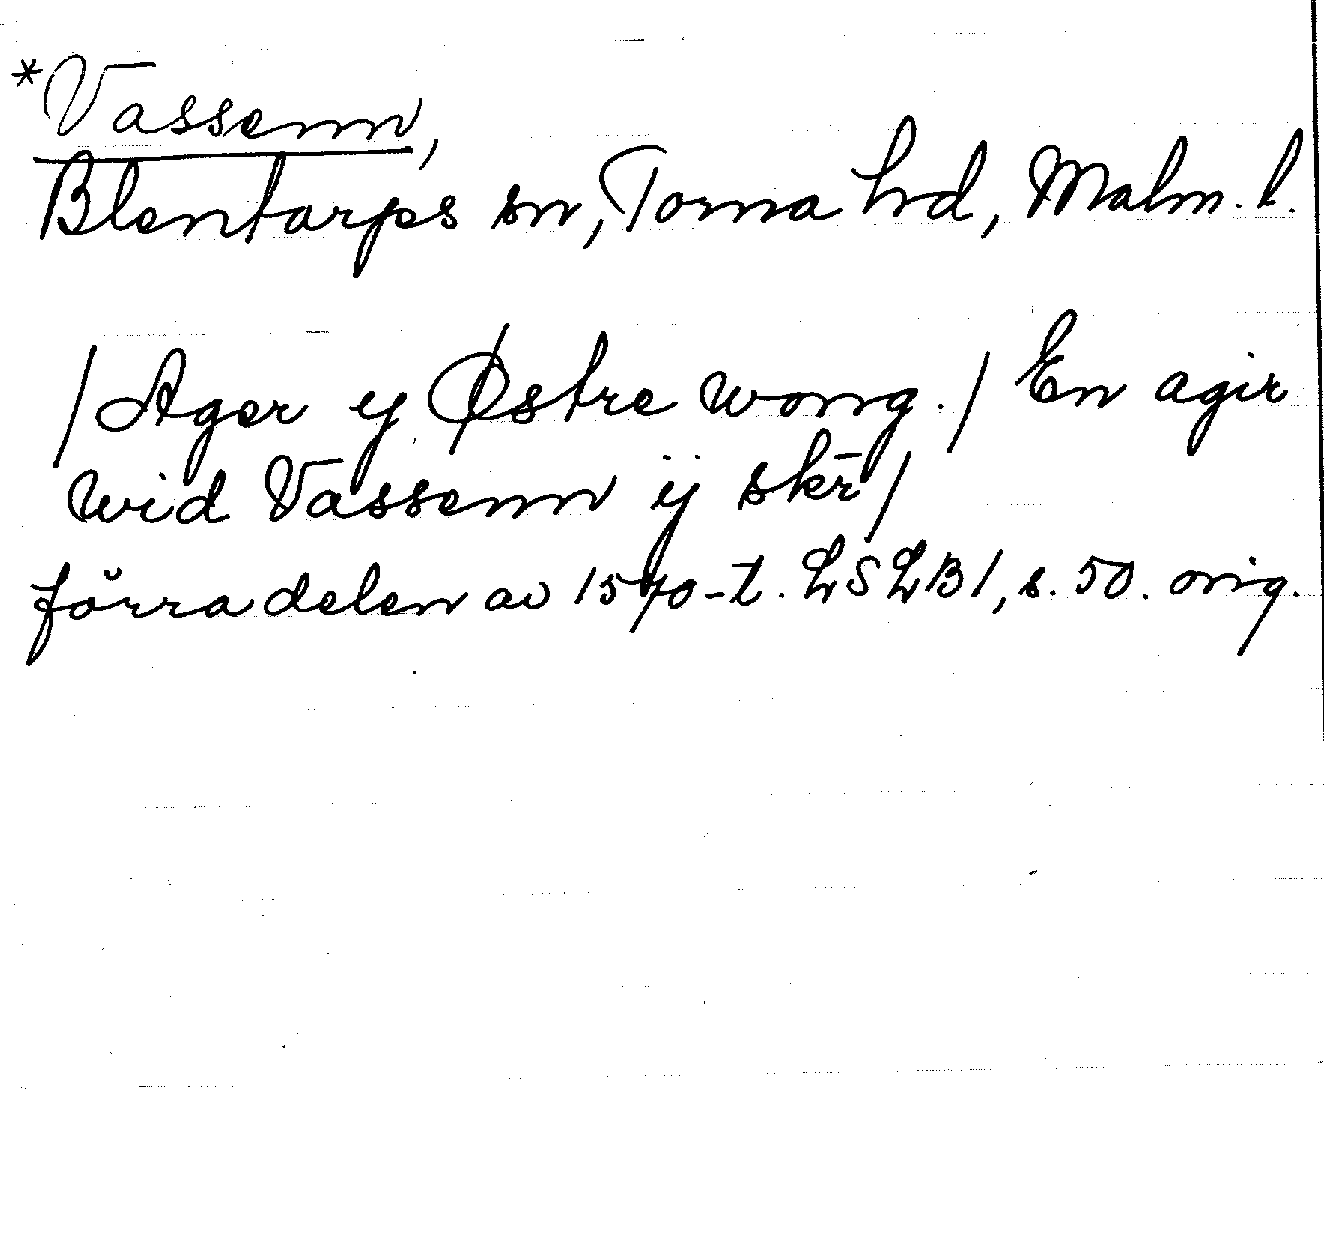 *Vassenn,
Blentarps sn, Torna hd, Malm. l.
/Ager ij Østre wong./ En agir
wid Vassenn ij skr̄/
förra delen av 1570-t. LSLB1, s. 50. orig.